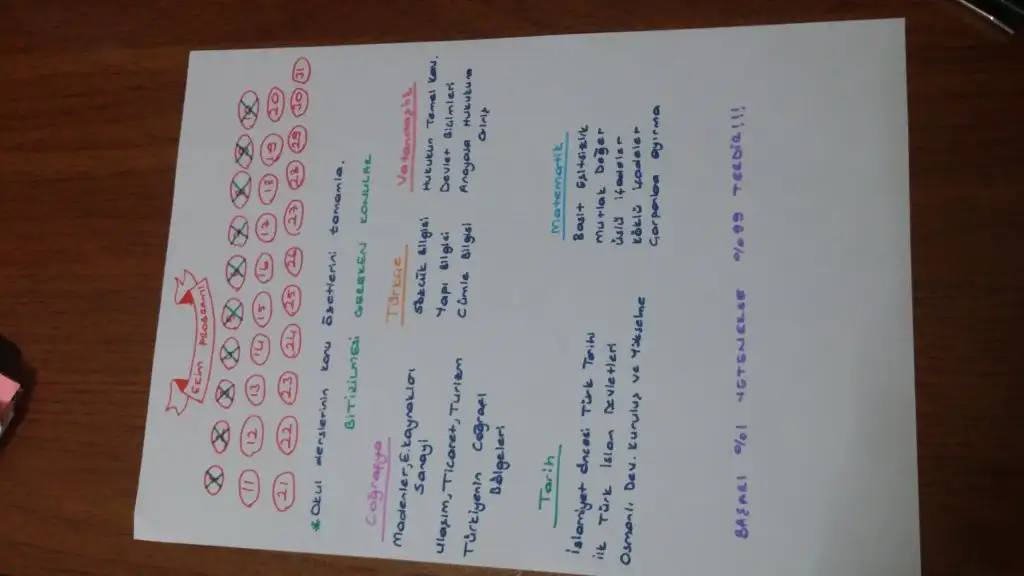 EKİM PROGRAMI
1 2 3 4 5 6 7 8 9 10
11 12 13 14 15 16 17 18 19 20
21 22 23 24 25 26 27 28 29 30 31
* Okul derslerinin konu özetlerini tamamla.
BİTİRİLMESİ GEREKEN KONULAR
Coğrafya
Madenler, E. kaynakları
Sanayi
Ulaşım, Ticaret, Turizm
Türkiyenin Coğrafi
Bölgeleri
Türkçe
Sözcük Bilgisi
Yapı Bilgisi
Cümle Bilgisi
Vatandaşlık
Hukukun Temel Kav.
Devlet Biçimleri
Anayasa Hukukuna
Giriş
Tarih
İslamiyet öncesi Türk Tarihi
ilk Türk İslam Devletleri
Osmanlı Dev. Kuruluş ve Yükselme
Matematik
Basit Eşitsizlik
Mutlak Değer
Üslü ifadeler
Köklü ifadeler
Çarpanlara ayırma
BAŞARI %1 YETENEKSE %99 TERDİR!!!